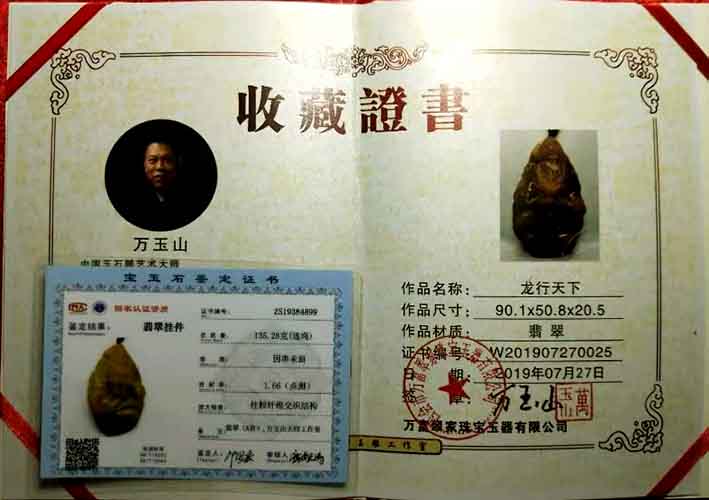 收藏證書
万玉山
中国玉石雕艺术大师
作品名称：龙行天下
作品尺寸：90.1x50.8x20.5
作品材质：翡翠
证书编号：W201907270025
2019年07月27日
万玉山
万富翠家珠宝玉器有限公司
玉雕工作室
宝玉石鉴定证书
国家认证资质
证书编号：ZS19384899
鉴定结果：翡翠挂件
总质量：135.28克(连绳)
因串未测
折射率：1.66（点测）
放大检查：柱粒纤维交织结构
备注：翡翠（A货），万玉山大师工作室
鉴定人：
审核人：